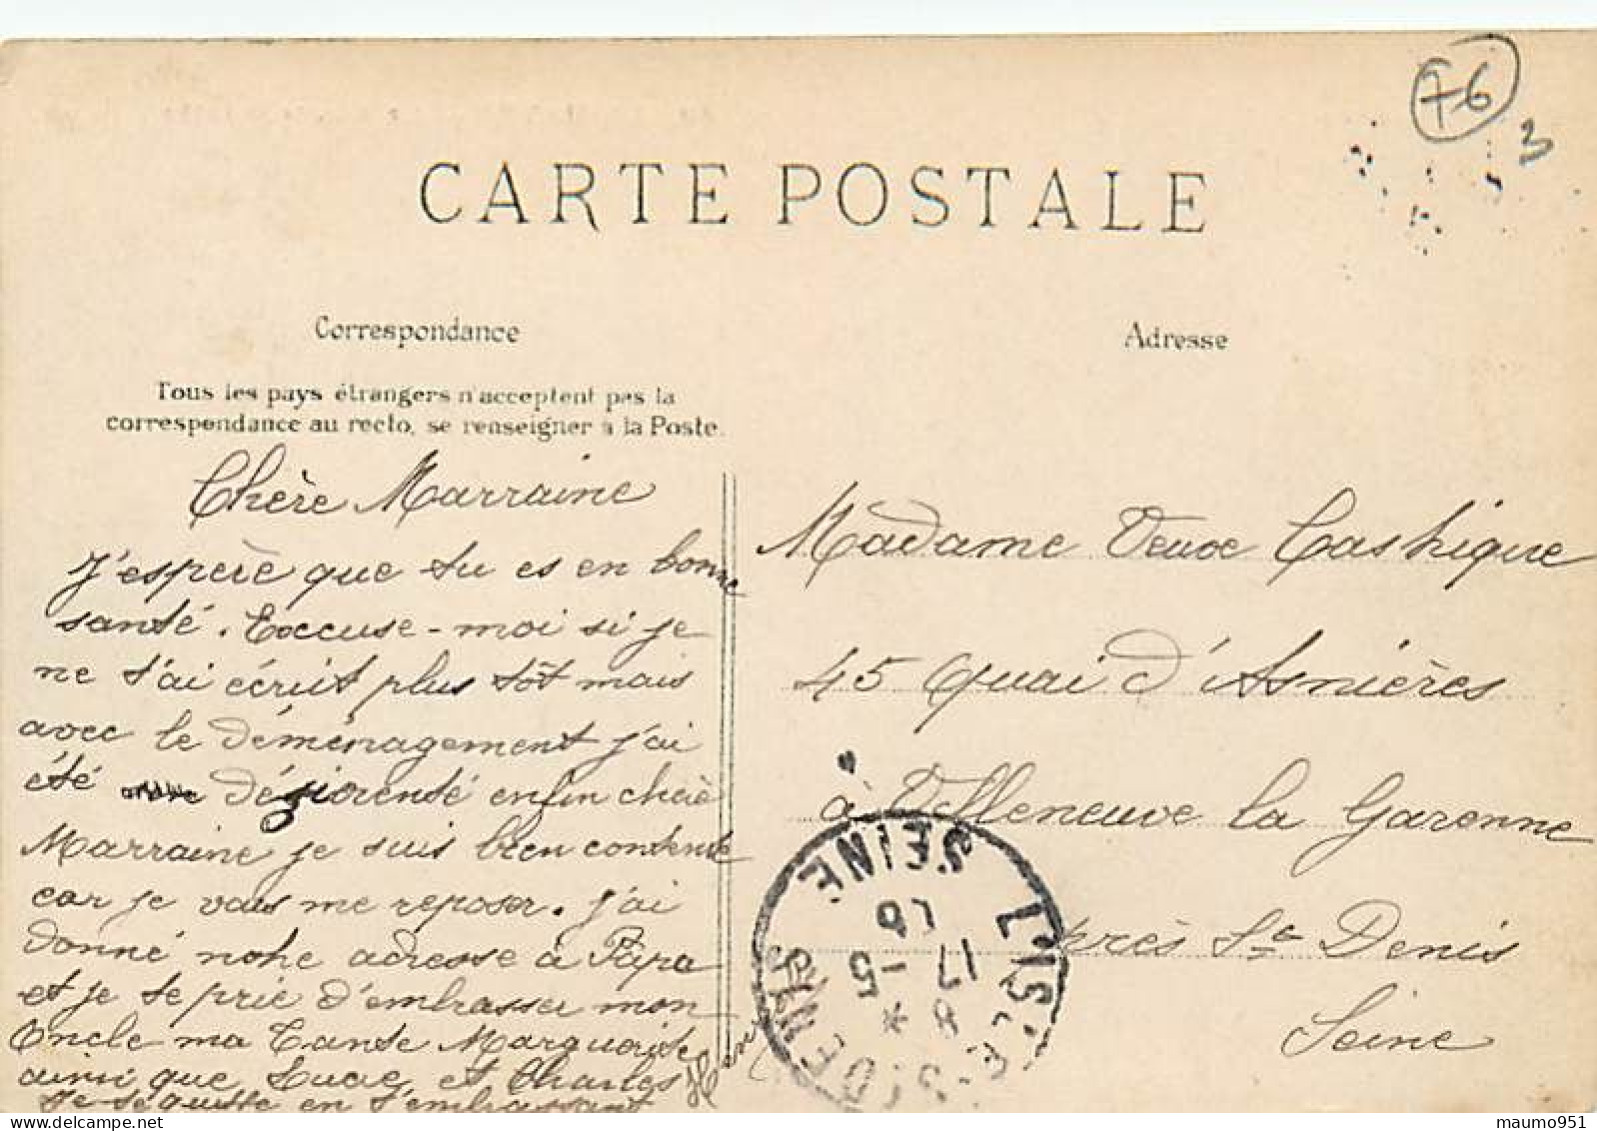 76
3
CARTE POSTALE
Correspondance
Tous les pays étrangers n'acceptent pas la
correspondance au recto, se renseigner à la Poste.
Chère Marraine
J'espère que tu es en bonne
santé. Excuse-moi si je
ne t'ai écrit plus tôt mais
avec le déménagement j'ai
été désiorenté enfin chère
Marraine je suis bien contente
car je vais me reposer. J'ai
donné notre adresse à Papa
et je te prie d'embrasser mon
Oncle ma Tante Marguerite
ainsi que Luce et Charles
Je te quitte en t'embrassant
Adresse
Madame Veuve
45 Quai d'Asnières
à Villeneuve la Garenne
près St Denis
Seine
L'ISLE-ST-DENIS
SEINE
17 - 5
maumo951